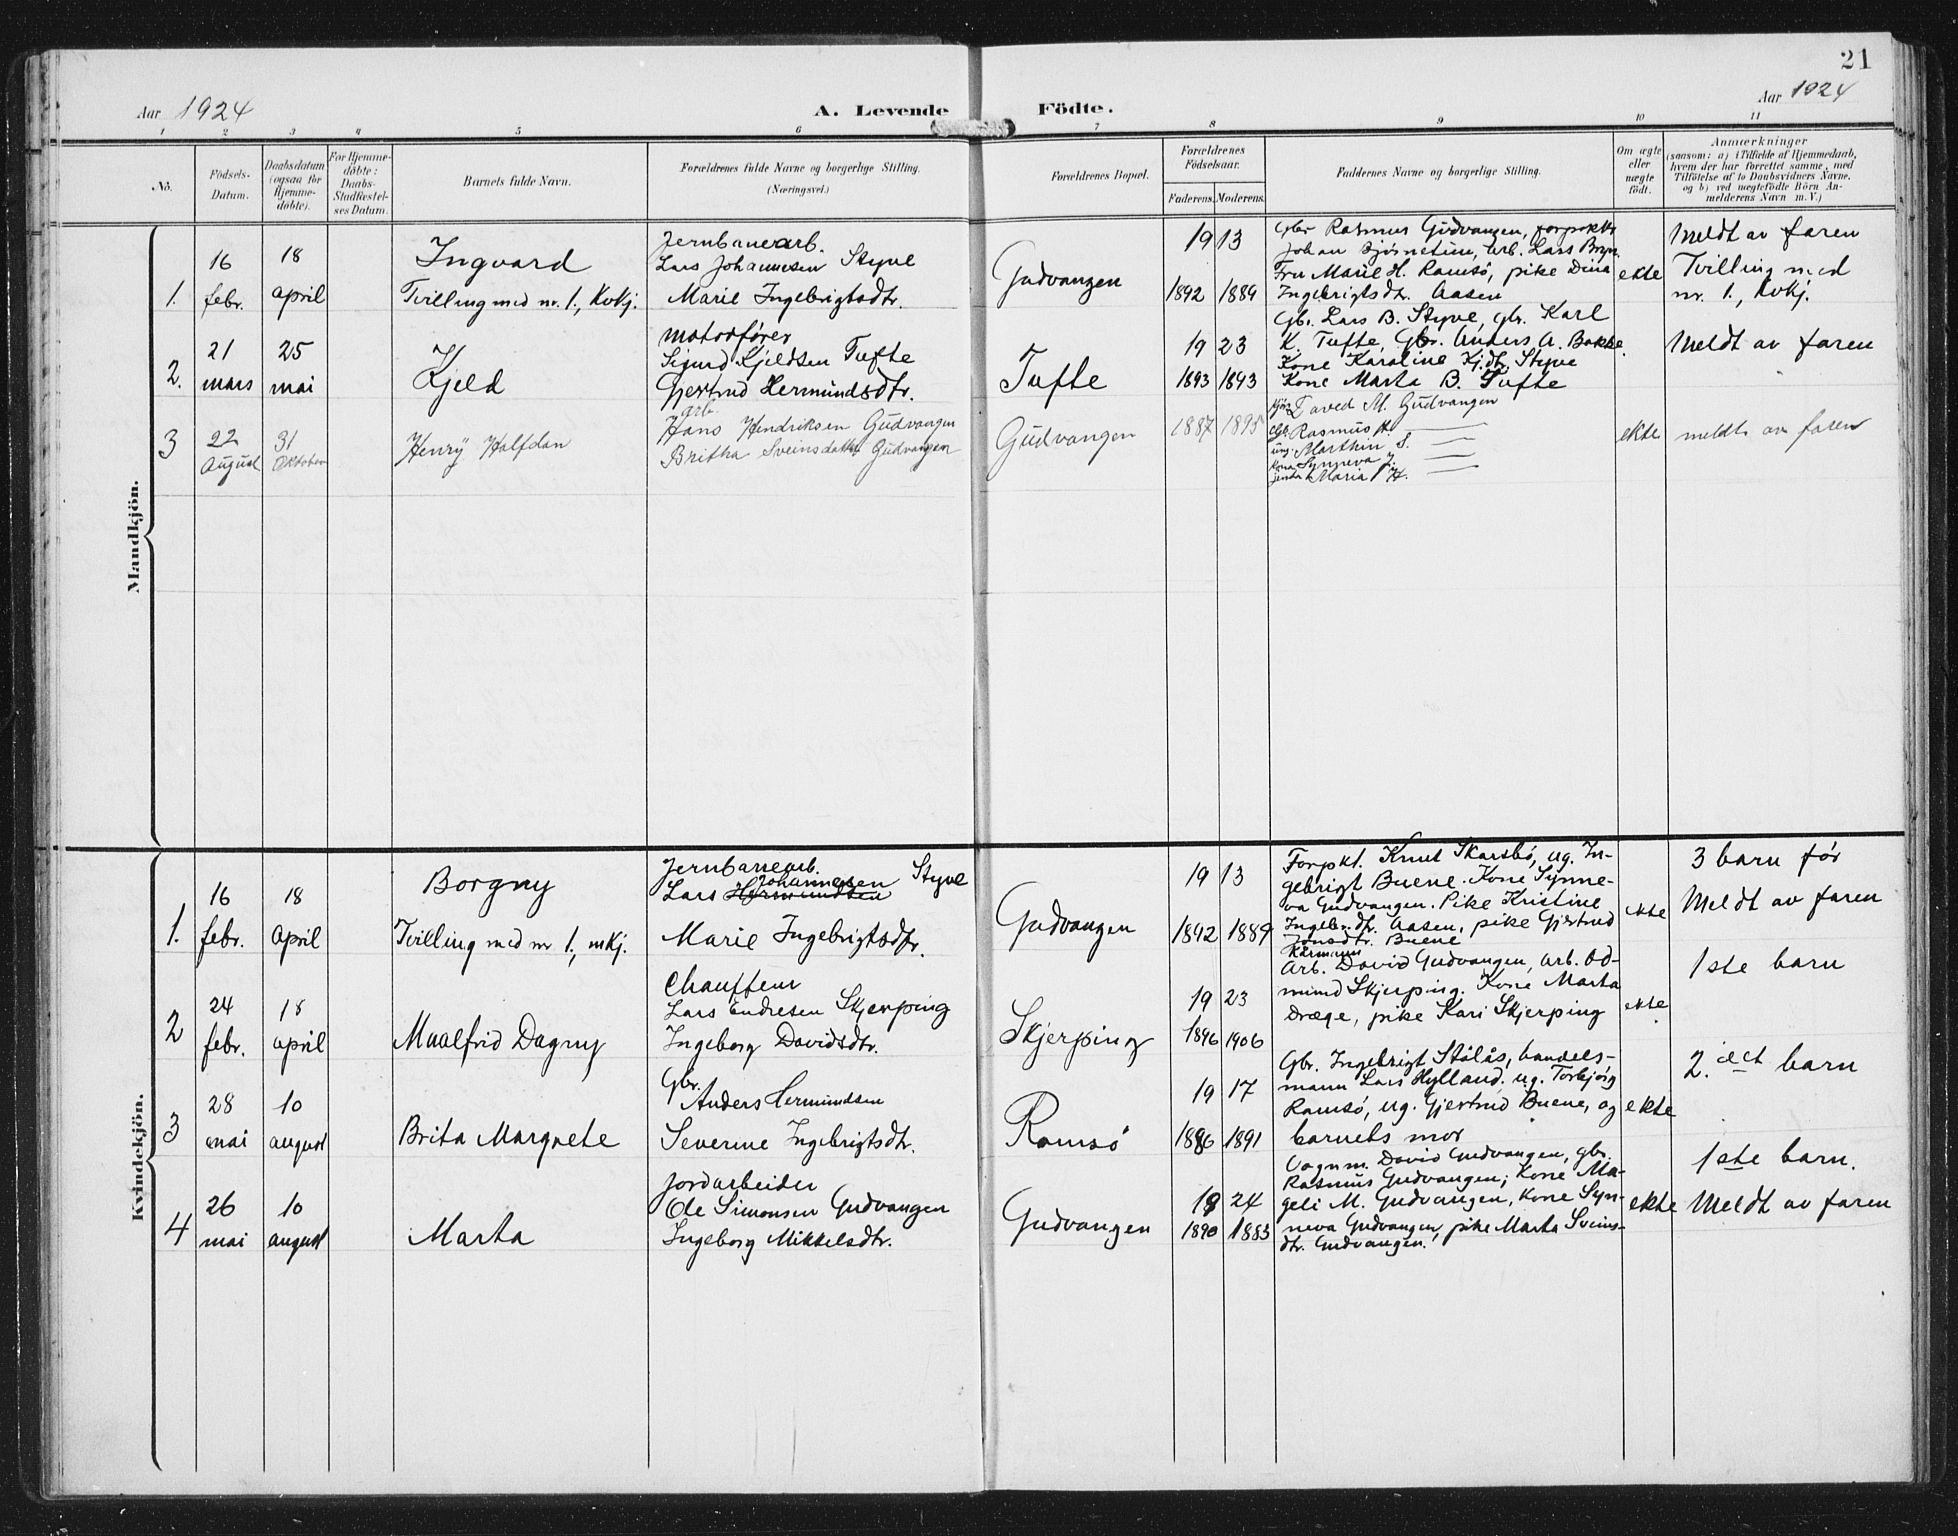 21
Aar 1924
A. Levende Födte.
Aar 1924
1 2 3 4 5 6 7 8 9 10 11
No.
Födsels-
Datum.
Daabsdatum
(ogsaa for
Hjemme-
döbte).
For Hjemme-
döbte:
Daabs-
Stadfæstel-
ses Datum.
Barnets fulde Navn.
Forældrenes fulde Navne og borgerlige Stilling.
(Næringsvei.)
Forældrenes Bopæl.
Forældrenes
Födselsaar.
Faderens. Moderens.
Faddernes Navne og borgerlige Stilling.
Om ægte
eller
uægte
födt.
Anmærkninger
(saasom: a) i Tilfælde af Hjemmedaab,
hvem der har forrettet samme, med
Tilföielse af to Daabsvidners Navne,
og b) ved uegtefödte Börn An-
melderens Navn m. V.)
Mandkjön.
1.
16
febr.
18
april
Ingvard
Tvilling med nr. 1., Kvkj.
Jernbanearb.
Lars Johannesen Styve
Marie Ingebrigtsdtr.
Gudvangen
19 13
1892 1889
Gbr Rasmus Gudvangen, forpakter
Johan Bjørnetun, arb. Lars Bryn.
Fru Marie H. Ramsö, pike Dina
Ingebrigtsdtr. Aasen
ekte
Meldt av faren
Tvilling med
nr. 1., Kvkj.
2.
21
mars
25
mai
Kjeld
Motorfører
Sigurd Kjeldsen Tufte
Gjertrud Hermundsdtr.
Tufte
19 23
1893 1893
Gbr. Lars B. Styve, gbr. Karl
K. Tufte, Gbr. Anders A. Bakke.
Kone Karoline Kj.dtr. Styve
Kone Marta B. Tufte
Meldt av faren
3
22
August
31
Oktober
Henrÿ Halfdan
arb.
Hans Hendriksen Gudvangen
Britha Sveinsdatter Gudvangen
Gudvangen
1887 1895
David M. Gudvangen
Gb. Rasmus H. —
ung. Marthin S. —
Kona Synneva J. —
jenta Maria H. —
ekte
meldt av faren
Kvindekjön.
1.
16
febr.
18
april
Borgny
Tvilling med nr 1., mkj.
Jernbanearb.
Johannesen
Lars Hermundsen Styve
Marie Ingebrigtsdtr.
Gudvangen
19 13
1892 1889
Forpkt. Knut Skarsbö, ug. In-
gebrigt Buene. Kone Synne-
va Gudvangen. Pike Kristine
Ingebr.dtr. Aasen, pike Gjertrud
Jonsdtr. Buene
ekte
3 barn før
Meldt av faren
2
24
febr.
18
april
Maalfrid Dagny
Chauffeur
Lars Endresen Skjerping
Ingeborg Davidsdtr.
Skjerping
19 23
1896 1906
Kármann
Arb. David Gudvangen, arb. Od-
mund Skjerping. Kone Marta
Dræge, pike Kari Skjerping
ekte
1ste barn
3
28
mai
10
august
Brita Margrete
Gbr.
Anders Hermundsen
Severine Ingebrigtsdtr.
Ramsö
19 17
1886 1891
Gbr. Ingebrigt Stålås, handels-
mann Lars Hylland. ug. Torbjörg
Ramsö, ug. Gjertrud Buene, og
barnets mor
ekte
2.det barn
4
26
mai
10
august
Marta
Jordarbeider
Ole Simonsen Gudvangen
Ingeborg Mikkelsdtr.
Gudvangen
19 24
1890 1883
Vognm. David Gudvangen, gbr.
Rasmus Gudvangen; Kone Ma-
geli M. Gudvangen, Kone Syn-
neva Gudvangen, pike Marta Sveins-
dtr. Gudvangen.
ekte
1ste barn.
Meldt av faren